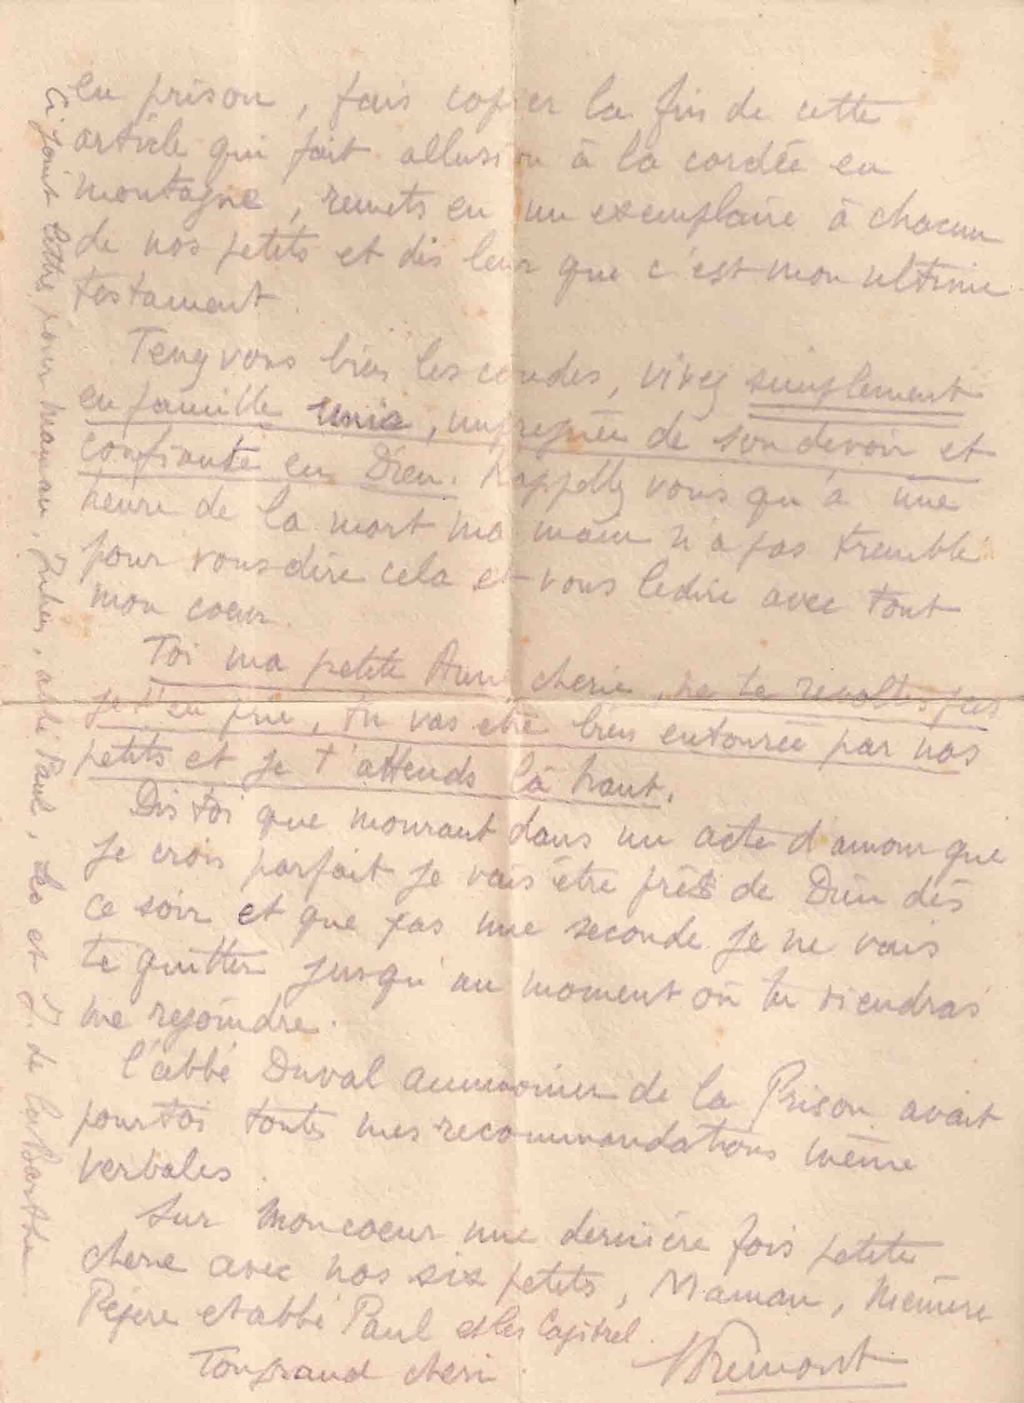 en prison, fais copier la fin de cette
article qui fait allusion à la cordée en
montagne, remets en un exemplaire à chacun
de nos petits et dis leur que c'est mon ultime
testament.
Tenez vous bien les coudes, vivez simplement
en famille unie, imprégnée de son devoir et
confiante en Dieu. Rappellez vous qu'à une
heure de la mort ma main n'a pas tremblé
pour vous dire cela et vous le dire avec tout
mon coeur.
Toi ma petite Anne cherie, ne te revoltes pas
je t'en prie, tu vas etre bien entourée par nos
petits et je t'attends là haut.
Dis toi que mourant dans un acte d'amour que
je crois parfait je vais être près de Dieu dès
ce soir et que pas une seconde je ne vais
te quitter jusqu'au moment où tu viendras
me rejoindre.
l'abbé Duval aumonier de la Prison avait
pour toi toutes mes recommandations même
verbales.
Sur mon coeur une dernière fois petite
cherie avec nos six petits, Maman, Mémère
Pépère et abbé Paul et les Capitrel.
Ton grand cheri
Brémont
Ci joint lettre pour Maman, Julien, abbé Paul, et J. de la Barthe